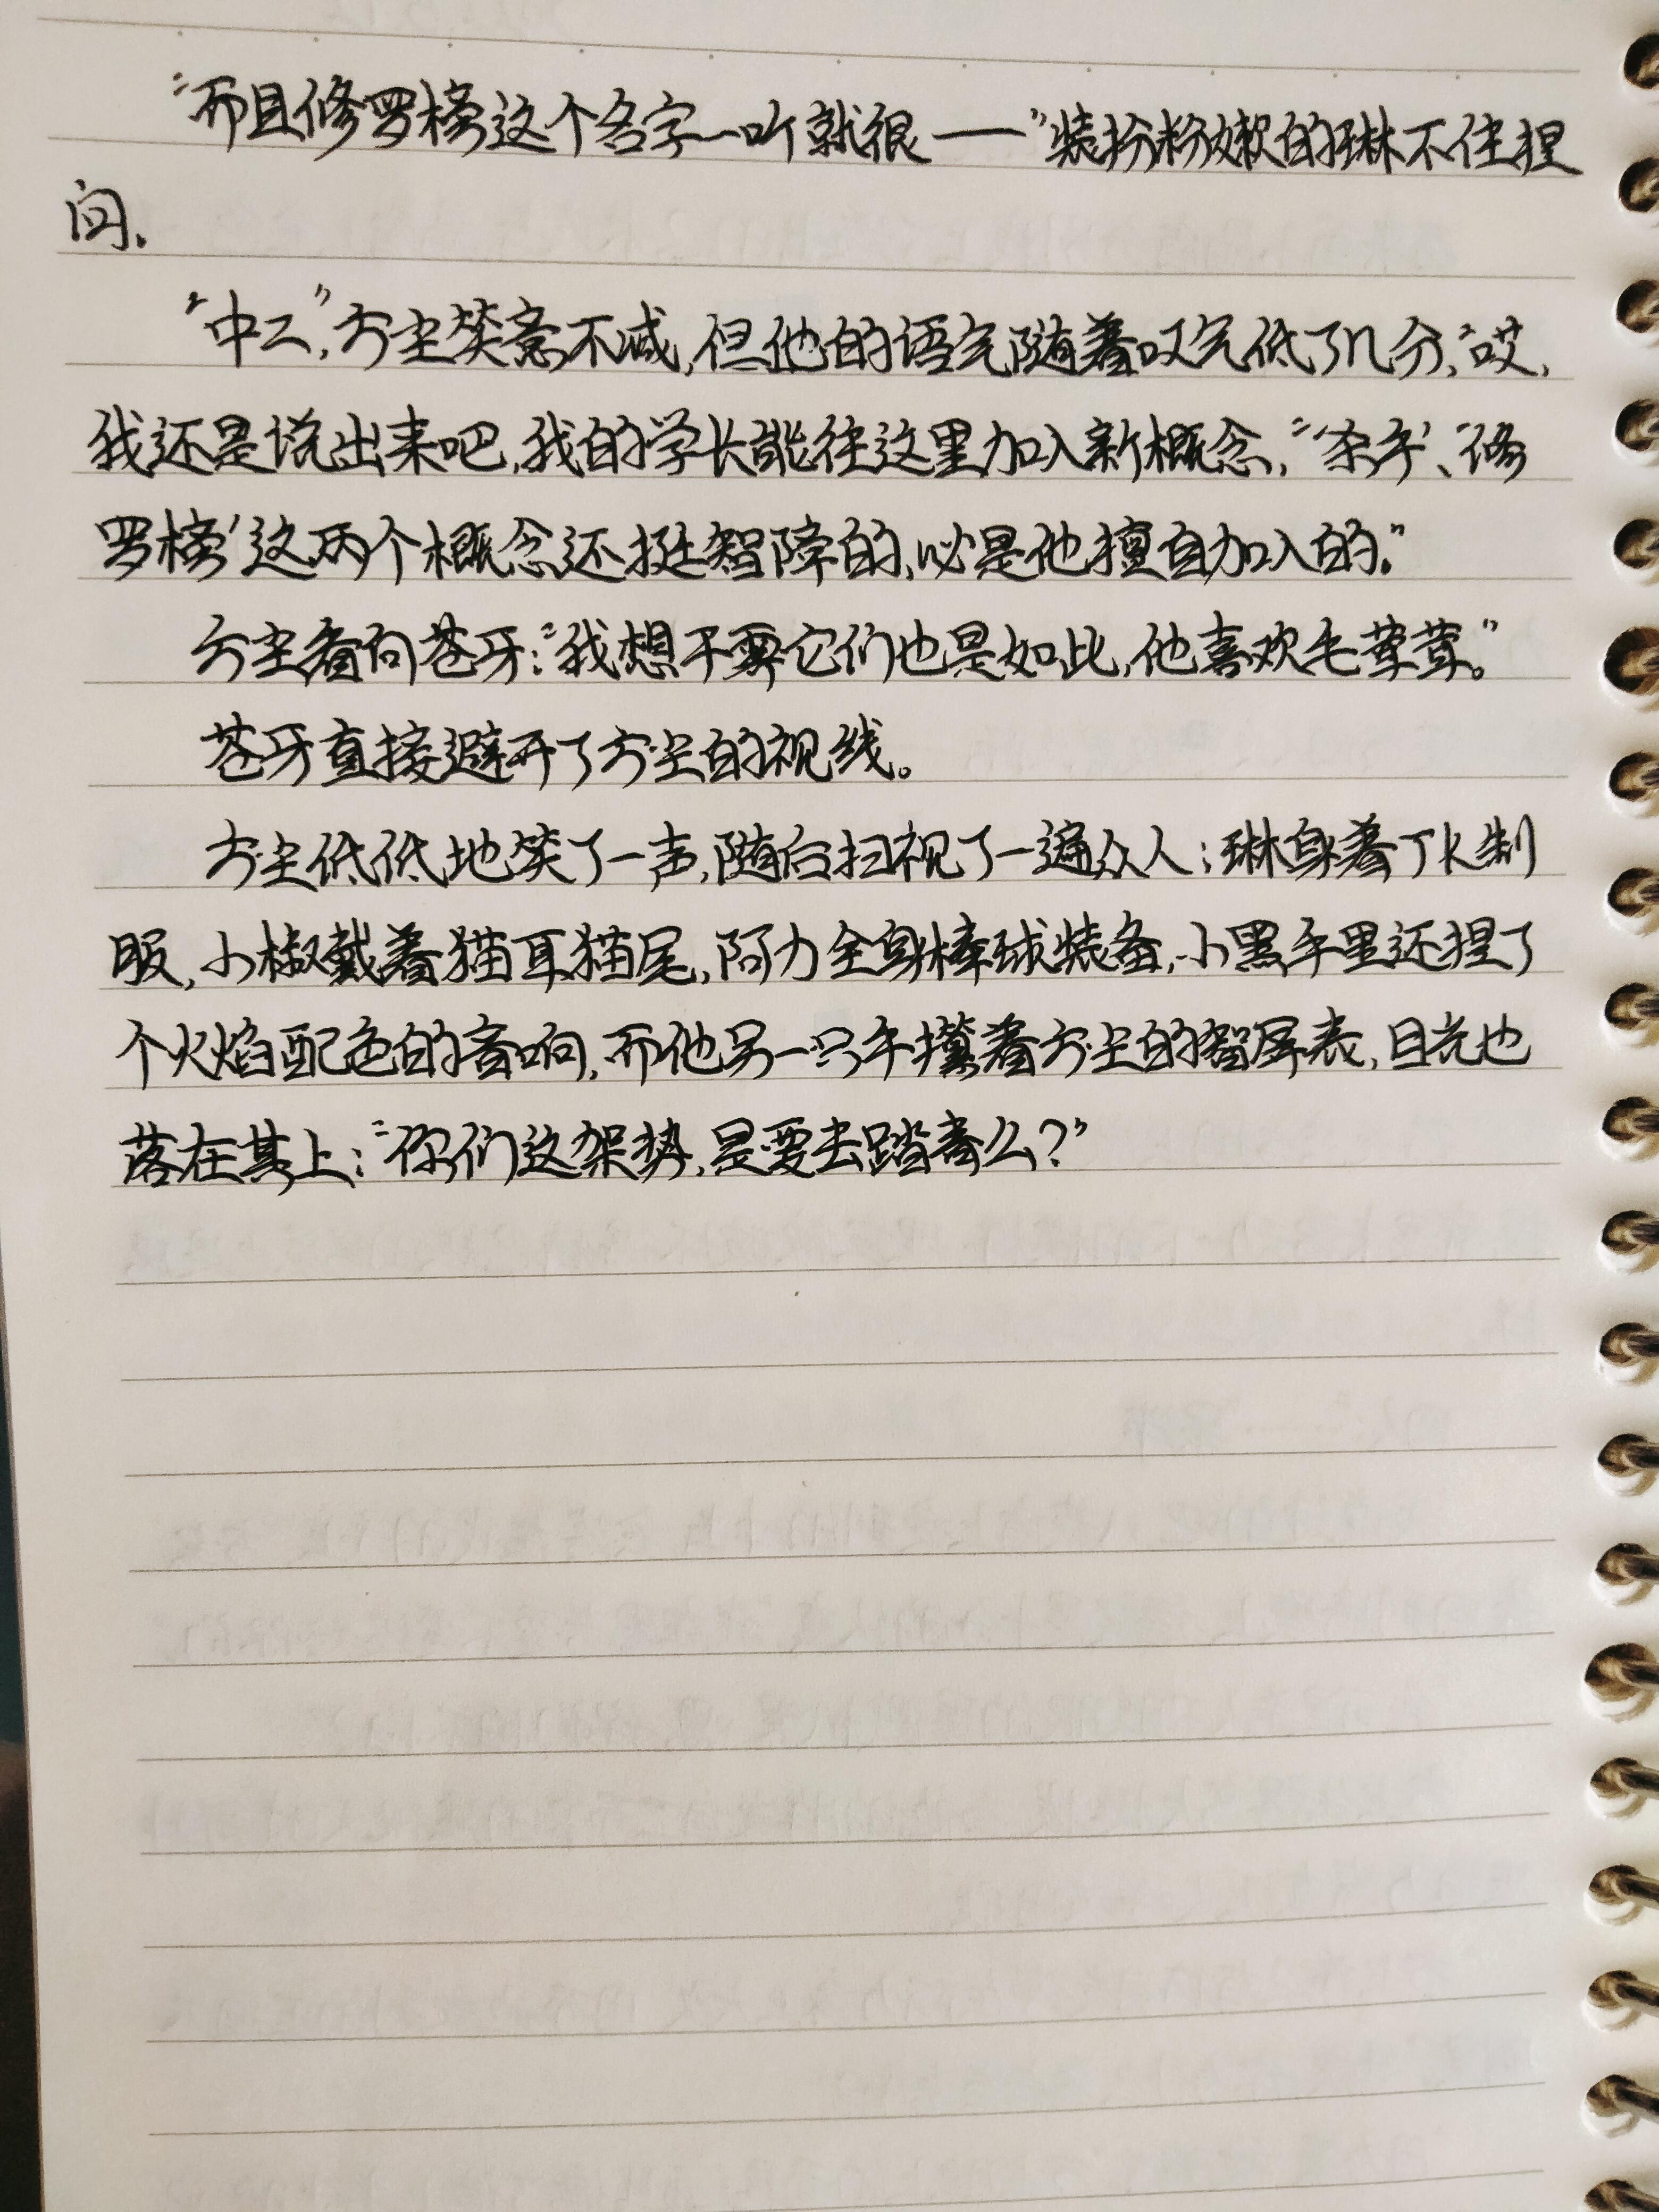 “而且修罗榜这个名字一听就很——”装扮粉嫩的琳不住捏
间.
“中二”,方尘笑意不减,但他的语气随着叹气低了几分,“哎,
我还是说出来吧,我的学长能往这里加入新概念,“‘杀手’、‘修
罗榜’这两个概念还挺智障的,必是他擅自加入的.”
方尘看向苍牙:“我想不要它们也是如此,他喜欢毛茸茸。”
苍牙直接避开了方尘的视线。
方尘低低地笑了一声,随后扫视了一遍众人:琳身着JK制
服,小椒戴着猫耳猫尾,阿力全身棒球装备,小黑手里还捏了
个火焰配色的音响,而他另一只手摸着方尘的智屏表,目光也
落在其上:“你们这架势,是要去踏青么?”